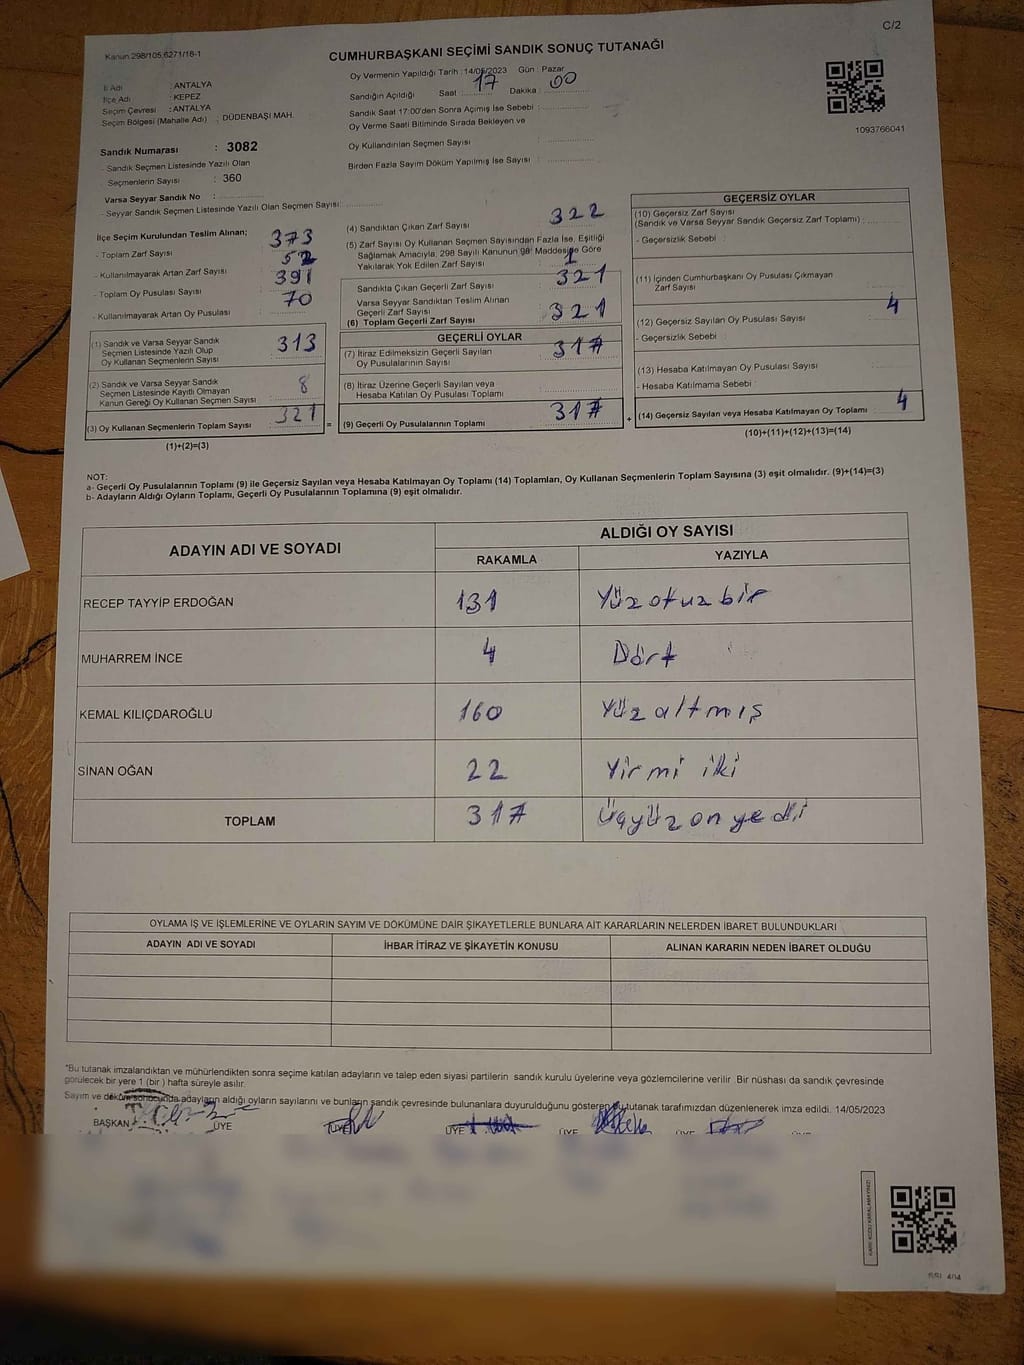 C/2
Kanun 298/105,6271/18-1
CUMHURBAŞKANI SEÇİMİ SANDIK SONUÇ TUTANAĞI
İl Adı : ANTALYA
İlçe Adı : KEPEZ
Seçim Çevresi : ANTALYA
Seçim Bölgesi (Mahalle Adı) : DÜDENBAŞI MAH.
Sandık Numarası : 3082
- Sandık Seçmen Listesinde Yazılı Olan
Seçmenlerin Sayısı : 360
Varsa Seyyar Sandık No :
- Seyyar Sandık Seçmen Listesinde Yazılı Olan Seçmen Sayısı:
Oy Vermenin Yapıldığı Tarih : 14/05/2023 Gün : Pazar
Sandığın Açıldığı Saat : 17 Dakika : 00
Sandık Saat 17:00'den Sonra Açımış İse Sebebi :
Oy Verme Saati Bitiminde Sırada Bekleyen ve
Oy Kullandırılan Seçmen Sayısı :
Birden Fazla Sayım Döküm Yapılmış İse Sayısı :
1093766041
İlçe Seçim Kurulundan Teslim Alınan;
- Toplam Zarf Sayısı : 373
- Kullanılmayarak Artan Zarf Sayısı : 52
- Toplam Oy Pusulası Sayısı : 391
- Kullanılmayarak Artan Oy Pusulası : 70
(1) Sandık ve Varsa Seyyar Sandık
Seçmen Listesinde Yazılı Olup
Oy Kullanan Seçmenlerin Sayısı : 313
(2) Sandık ve Varsa Seyyar Sandık
Seçmen Listesinde Kayıtlı Olmayan
Kanun Gereği Oy Kullanan Seçmen Sayısı : 8
(3) Oy Kullanan Seçmenlerin Toplam Sayısı : 321
(1)+(2)=(3)
(4) Sandıktan Çıkan Zarf Sayısı : 322
(5) Zarf Sayısı Oy Kullanan Seçmen Sayısından Fazla İse, Eşitliği
Sağlamak Amacıyla, 298 Sayılı Kanunun 98. Maddesine Göre
Yakılarak Yok Edilen Zarf Sayısı : 1
Sandıkta Çıkan Geçerli Zarf Sayısı : 321
Varsa Seyyar Sandıktan Teslim Alınan
Geçerli Zarf Sayısı
(6) Toplam Geçerli Zarf Sayısı : 321
GEÇERLİ OYLAR
(7) İtiraz Edilmeksizin Geçerli Sayılan
Oy Pusulalarının Sayısı : 317
(8) İtiraz Üzerine Geçerli Sayılan veya
Hesaba Katılan Oy Pusulası Toplamı :
= (9) Geçerli Oy Pusulalarının Toplamı : 317 +
GEÇERSİZ OYLAR
(10) Geçersiz Zarf Sayısı
(Sandık ve Varsa Seyyar Sandık Geçersiz Zarf Toplamı) :
- Geçersizlik Sebebi :
(11) İçinden Cumhurbaşkanı Oy Pusulası Çıkmayan
Zarf Sayısı :
(12) Geçersiz Sayılan Oy Pusulası Sayısı : 4
- Geçersizlik Sebebi :
(13) Hesaba Katılmayan Oy Pusulası Sayısı :
- Hesaba Katılmama Sebebi :
(14) Geçersiz Sayılan veya Hesaba Katılmayan Oy Toplamı : 4
(10)+(11)+(12)+(13)=(14)
NOT:
a- Geçerli Oy Pusulalarının Toplamı (9) ile Geçersiz Sayılan veya Hesaba Katılmayan Oy Toplamı (14) Toplamları, Oy Kullanan Seçmenlerin Toplam Sayısına (3) eşit olmalıdır. (9)+(14)=(3)
b- Adayların Aldığı Oyların Toplamı, Geçerli Oy Pusulalarının Toplamına (9) eşit olmalıdır.
ADAYIN ADI VE SOYADI
ALDIĞI OY SAYISI
RAKAMLA YAZIYLA
RECEP TAYYİP ERDOĞAN 131 Yüzotuzbir
MUHARREM İNCE 4 Dört
KEMAL KILIÇDAROĞLU 160 Yüzaltmış
SİNAN OĞAN 22 Yirmi iki
TOPLAM 317 Üçyüz on yedi
OYLAMA İŞ VE İŞLEMLERİNE VE OYLARIN SAYIM VE DÖKÜMÜNE DAİR ŞİKAYETLERLE BUNLARA AİT KARARLARIN NELERDEN İBARET BULUNDUKLARI
ADAYIN ADI VE SOYADI İHBAR İTİRAZ VE ŞİKAYETİN KONUSU ALINAN KARARIN NEDEN İBARET OLDUĞU
*Bu tutanak imzalandıktan ve mühürlendikten sonra seçime katılan adayların ve talep eden siyasi partilerin sandık kurulu üyelerine veya gözlemcilerine verilir Bir nüshası da sandık çevresinde
görülecek bir yere 1 (bir ) hafta süreyle asılır.
Sayım ve döküm sonucunda adayların aldığı oyların sayılarını ve bunların sandık çevresinde bulunanlara duyurulduğunu gösteren bu tutanak tarafımızdan düzenlenerek imza edildi. 14/05/2023
BAŞKAN ÜYE ÜYE ÜYE ÜYE ÜYE ÜYE
KARE KODU KARALAMAYINIZ!